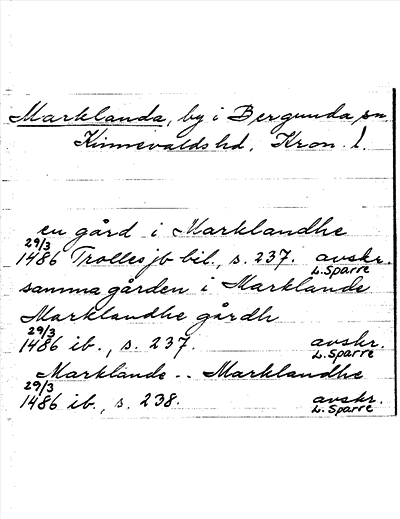 Marklanda, by i Bergunda sn
Kinnevalds hd. Kron. l.
en gård i Marklandhe
29/3
1486 Trolles jb bil., s. 237. avskr.
L. Sparre
samma gården i Marklande
Marklandhe gårdh
29/3
1486 ib., s. 237. avskr.
L. Sparre
Marklande .. Marklandhe
29/3
1486 ib., s. 238. avskr.
L. Sparre